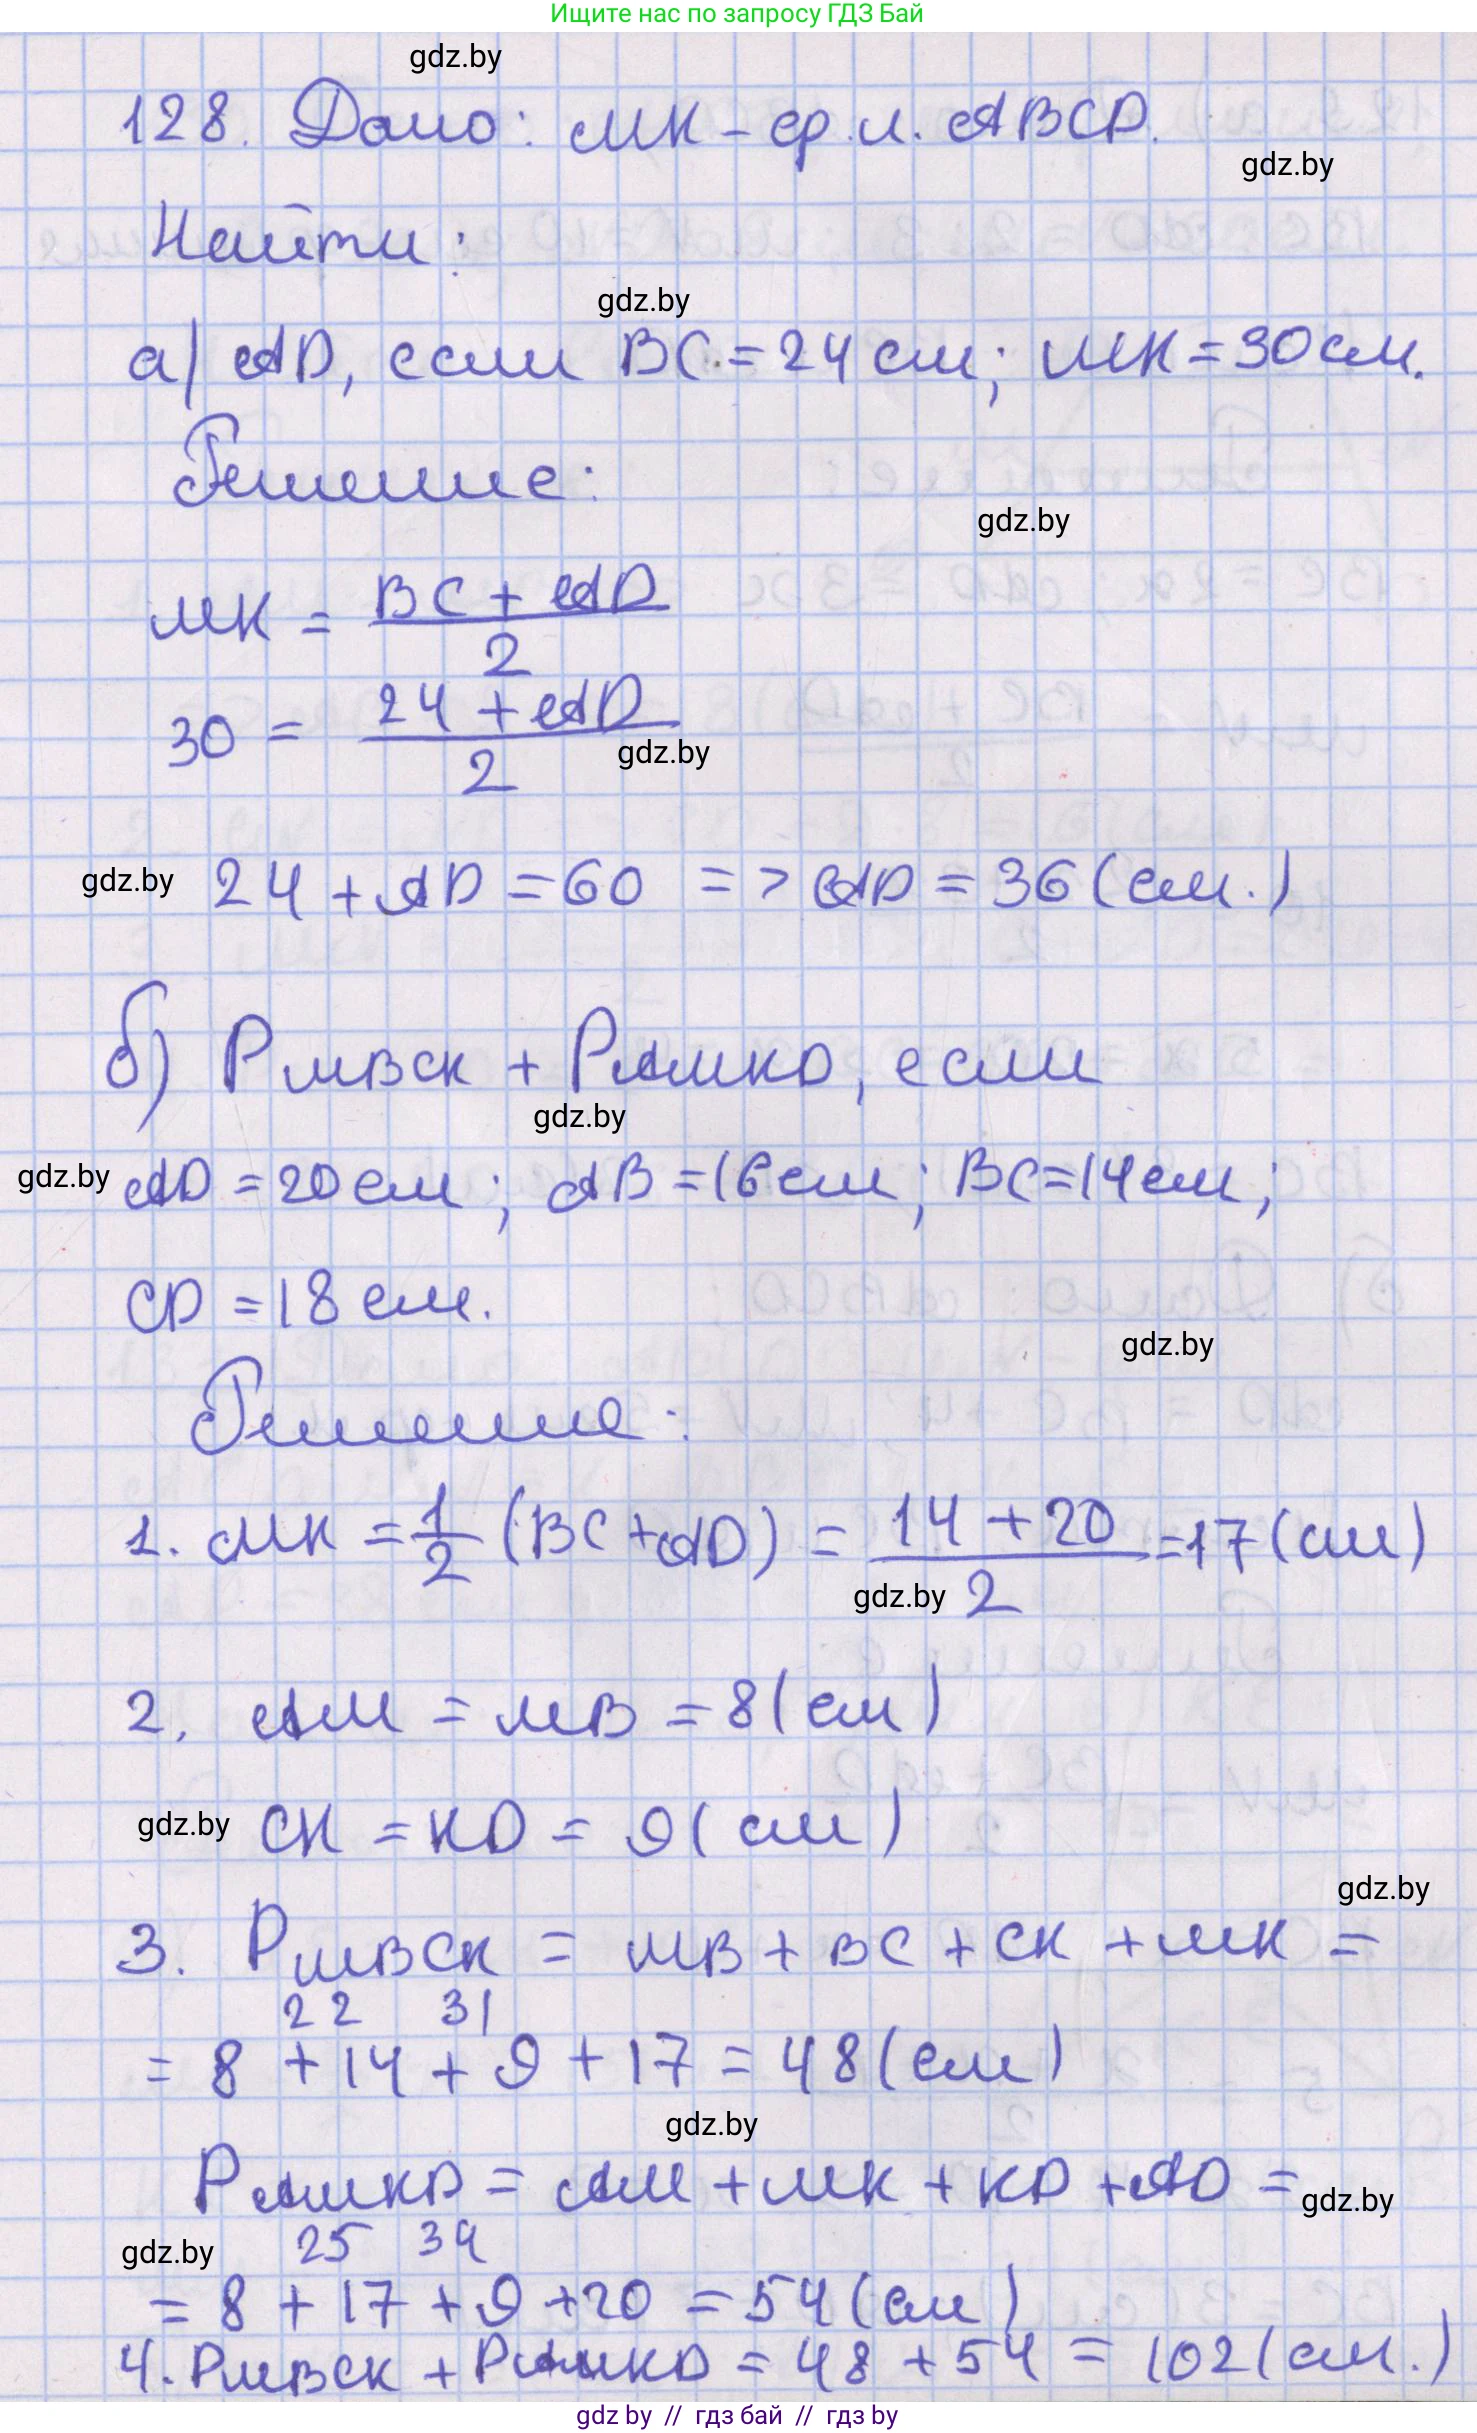 Ищите нас по запросу ГДЗ Бай
gdz.by
128. Дано: MK - ср. л. ABCD.
gdz.by
Найти:
gdz.by
а) AD, если BC = 24 см; MK = 30 см.
Решение:
gdz.by
MK = \frac{BC + AD}{2}
30 = \frac{24 + AD}{2}
gdz.by
gdz.by
24 + AD = 60 => AD = 36 (см.)
б) P MBCK + P AMKD, если
gdz.by
gdz.by
AD = 20 см; AB = 16 см; BC = 14 см;
CD = 18 см.
gdz.by
Решение:
1. MK = \frac{1}{2} (BC + AD) = \frac{14 + 20}{2} = 17 (см)
gdz.by
2. AM = MB = 8 (см)
gdz.by
CK = KD = 9 (см)
gdz.by
3. P MBCK = MB + BC + CK + MK =
22 31
= 8 + 14 + 9 + 17 = 48 (см)
gdz.by
P AMKD = AM + MK + KD + AD =
gdz.by
gdz.by
25 34
= 8 + 17 + 9 + 20 = 54 (см)
4. P MBCK + P AMKD = 48 + 54 = 102 (см.)
gdz by // гдз бай // гдз by